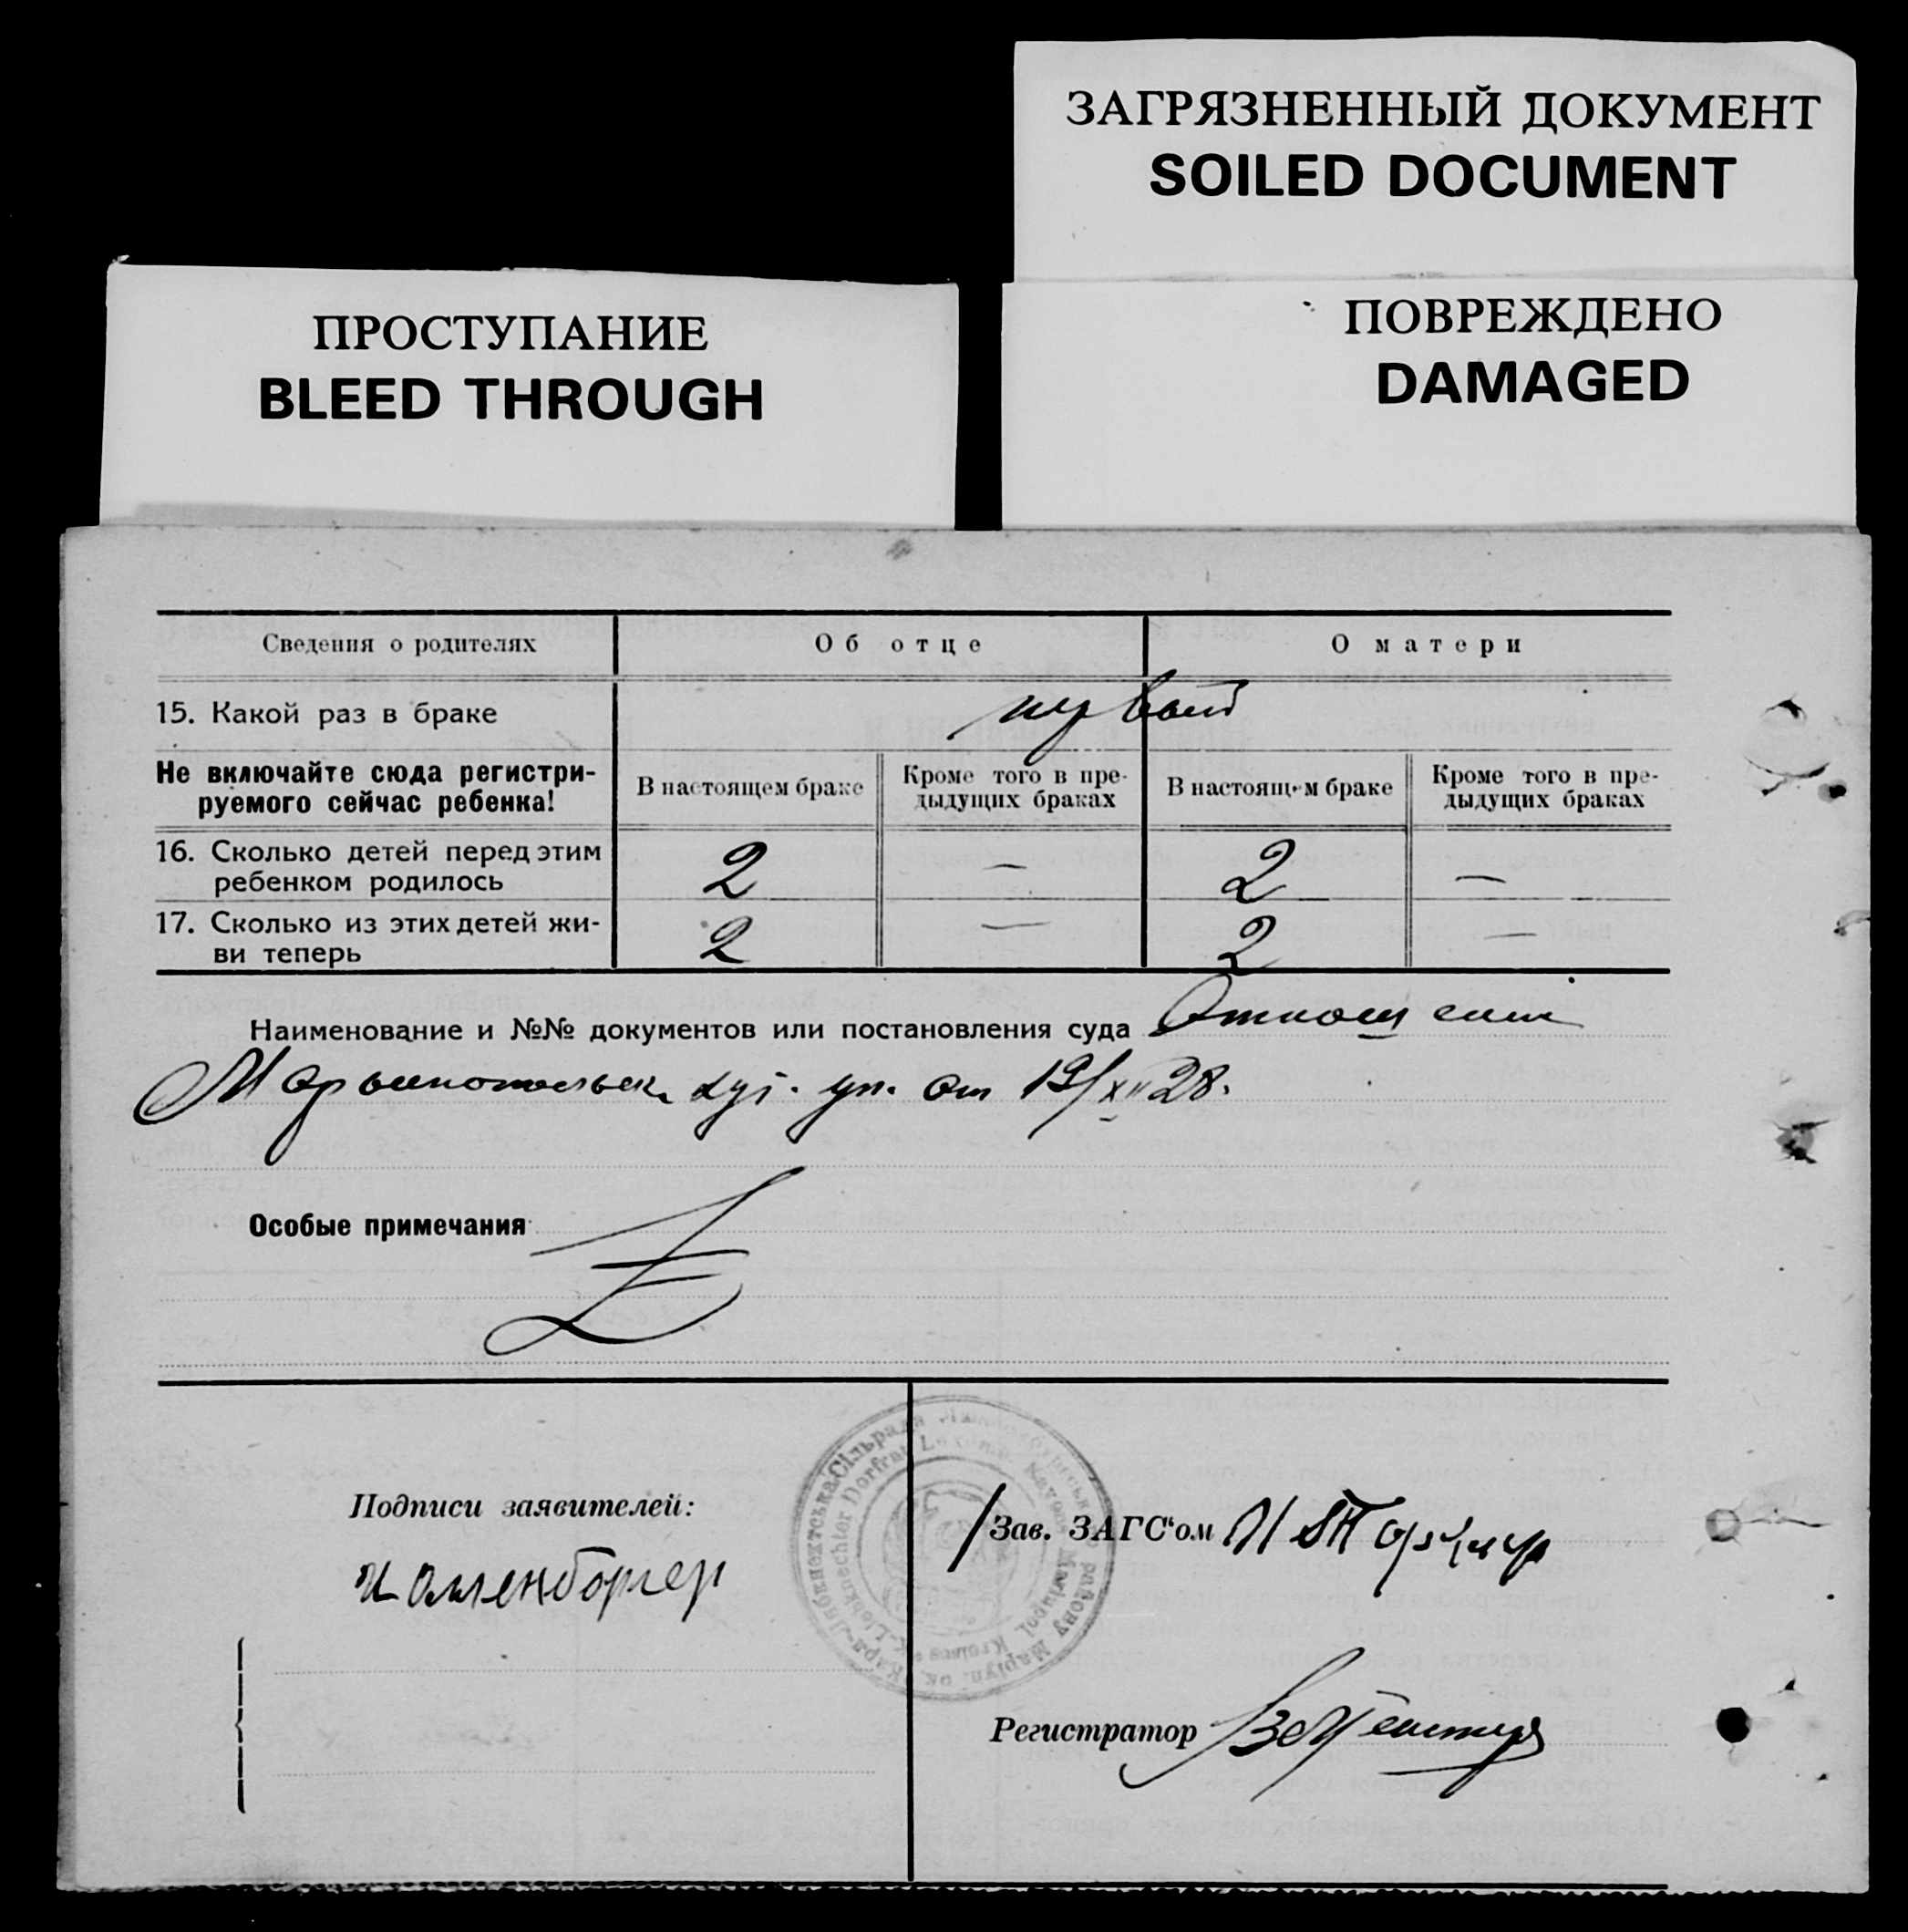 ЗАГРЯЗНЕННЫЙ ДОКУМЕНТ
SOILED DOCUMENT
ПРОСТУПАНИЕ
BLEED THROUGH
ПОВРЕЖДЕНО
DAMAGED
Сведения о родителях Об отце О матери
15. Какой раз в браке первый
Не включайте сюда регистри-
руемого сейчас ребенка!
В настоящем браке
Кроме того в пре-
дыдущих браках
В настоящем браке
Кроме того в пре-
дыдущих браках
16. Сколько детей перед этим
ребенком родилось
2 — 2 —
17. Сколько из этих детей жи-
ви теперь
2 — 2 —
Наименование и №№ документов или постановления суда
от 19/XII 28.
Особые примечания
Подписи заявителей:
Зав. ЗАГС'ом
Регистратор